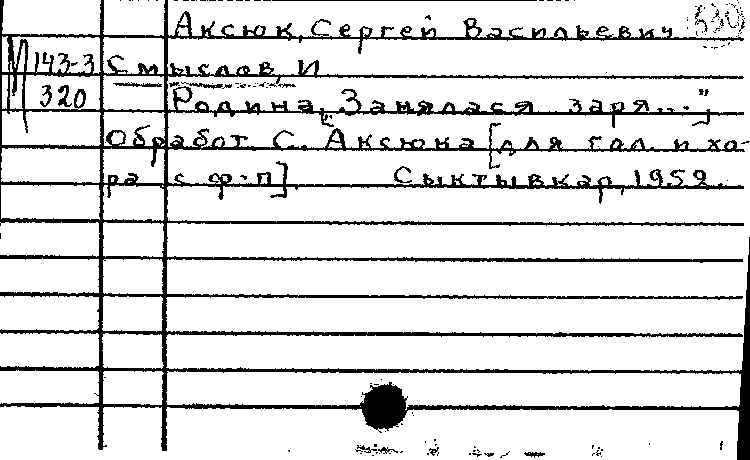 Аксюк, Сергей Васильевич 530
М 143-3 Смыслов, И
320 Родина ["Занялася заря..."]
Обработ. С. Аксюка [для гол. и хо-
ра с ф-п]. Сыктывкар, 1952.